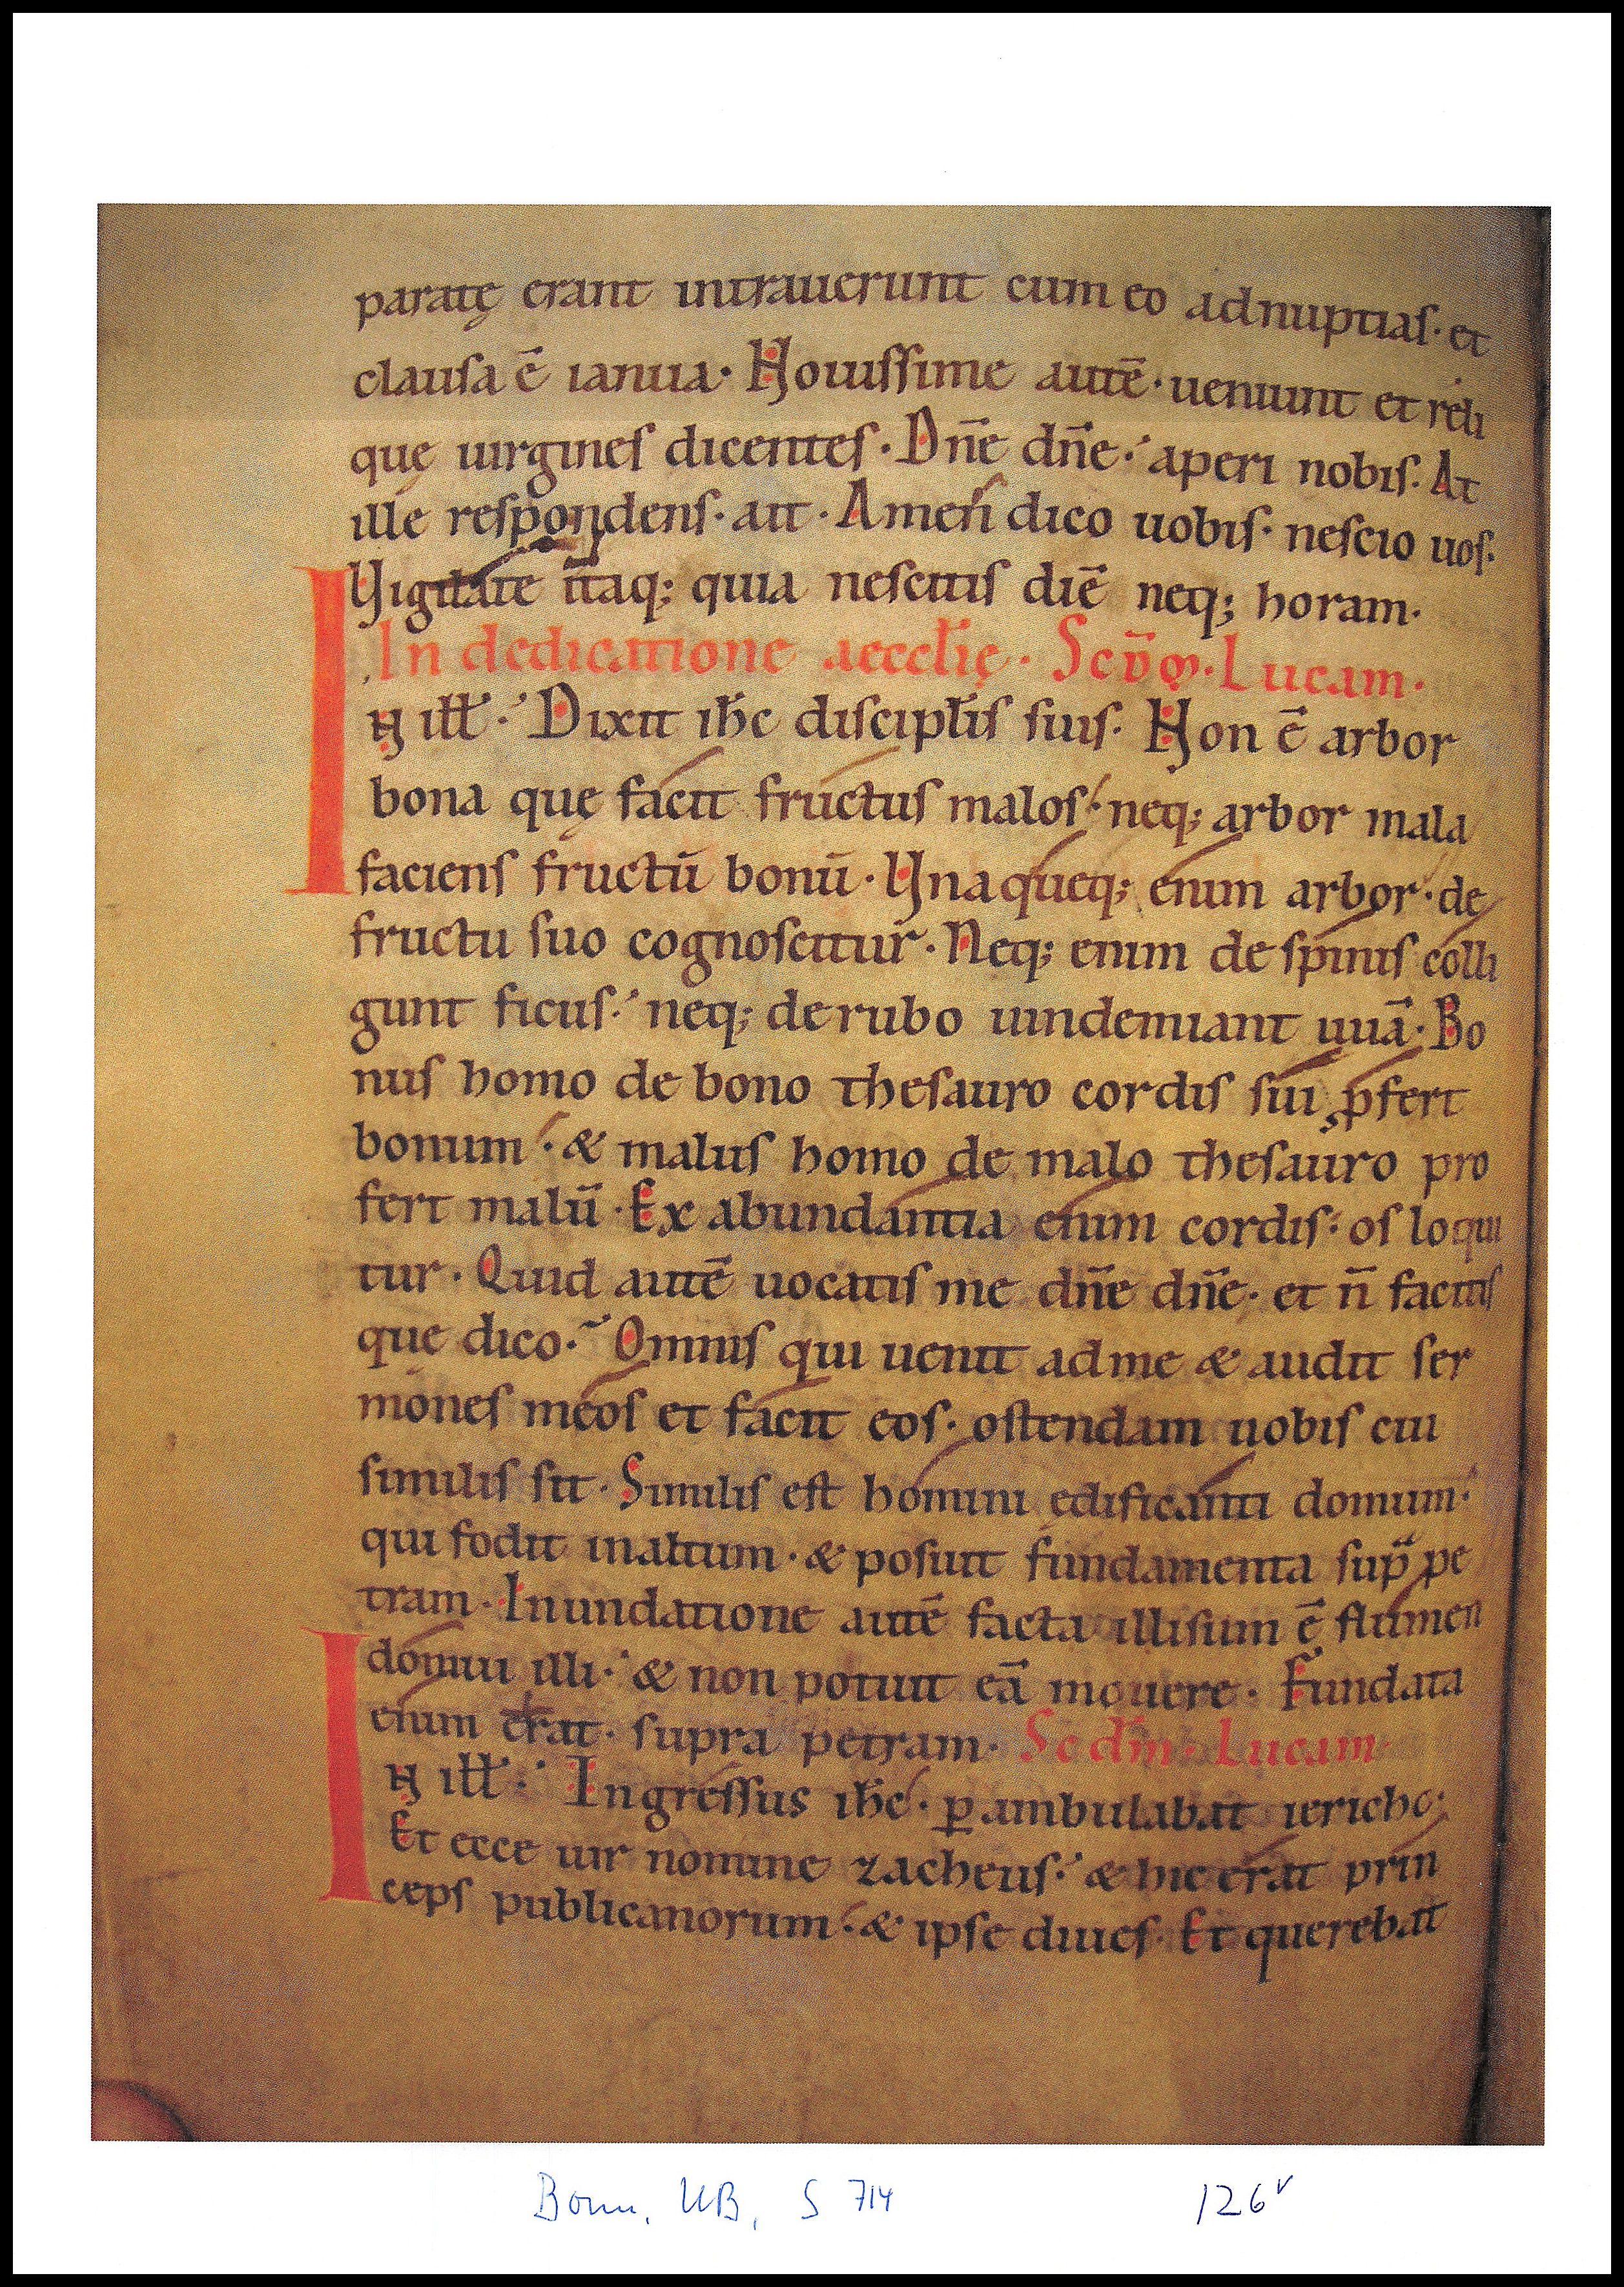 paratę erant intrauerunt cum eo adnuptias· et
clausa ē ianua· Nouissime autē· ueniunt et reli
quę uirgines dicentes· Dn̄e dn̄e· aperi nobis· At
ille respondens· ait· Amen dico uobis· nescio uos·
Vigilate itaq; quia nescitis diē neq; horam·
In dedicatione aecclię· Scd̄m· Lucam·
IN ill̄· Dixit ih̄c discipl̄is suis· Non ē arbor
bona quę facit fructus malos· neq; arbor mala
faciens fructū bonū· Vnaqueq; enim arbor· de
fructu suo cognoscitur· Neq; enim de spinis colli
gunt ficus· neq; derubo uindemiant uuā· Bo
nus homo de bono thesauro cordis sui ꝓfert
bonum· & malus homo de malo thesauro pro
fert malū· Ex abundantia enim cordis· os loqui
tur· Quid autē uocatis me dn̄e dn̄e· et n̄ facitis
que dico· Omnis qui uenit adme & audit ser
mones meos et facit eos· ostendam uobis cui
similis sit· Similis est homini edificanti domum·
qui fodit inaltum· & posuit fundamenta supͣ pe
tram· Inundatione autē facta illisum ē flumen
domui illi· & non potuit eā mouere· Fundata
enim erat· supra petram· Scdm̄· Lucam
IN ill̄· Ingressus ih̄c· ꝑambulabat iericho·
Et ecce uir nomine zacheus· & hic erat prin
ceps publicanorum· & ipse diues· Et querebat
Bonn, UB, S 714
126v